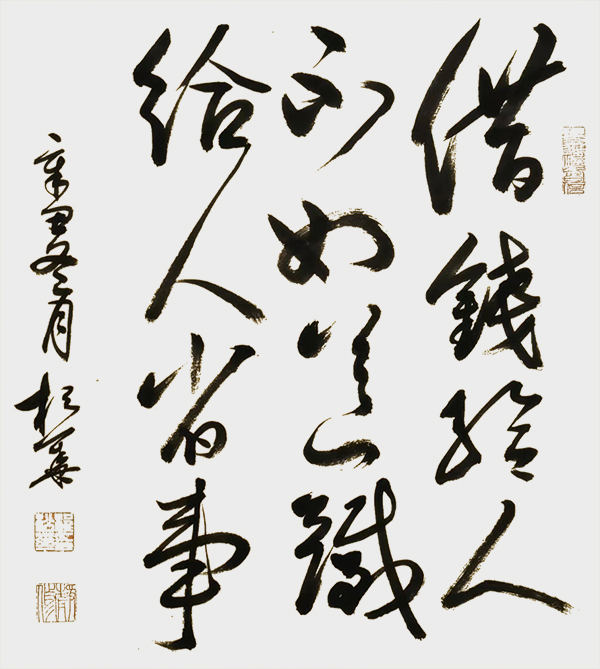 借錢給人
不如送錢
給人省事
辛丑冬月 松華